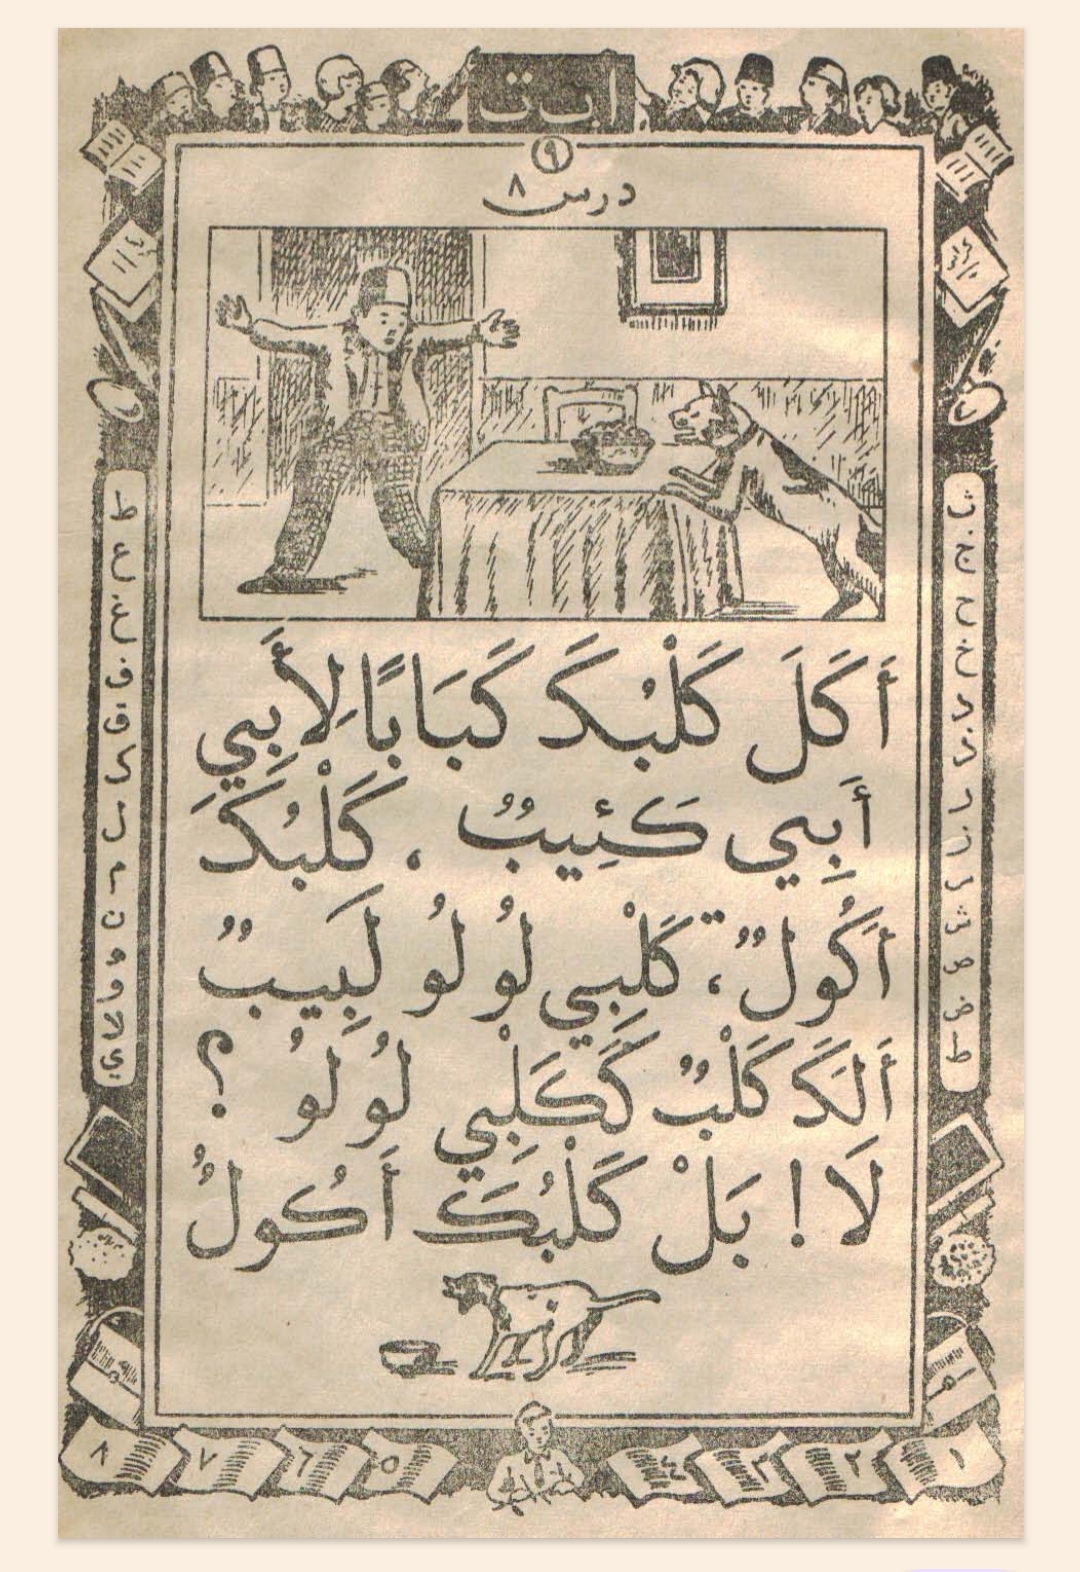 ا ب ت
٩
درس ٨
أَكَلَ كَلْبُكَ كَبَابًا لِأَبِي
أَبِي كَئِيبٌ . كَلْبُكَ
أَكُولٌ ، كَلْبِي لُولُو لَبِيبٌ
أَلَكَ كَلْبٌ كَكَلْبِي لُولُو ؟
لَا ! بَلْ كَلْبُكَ أَكُولٌ
٨ ٧ ٦ ٥ ٤ ٣ ٢ ١